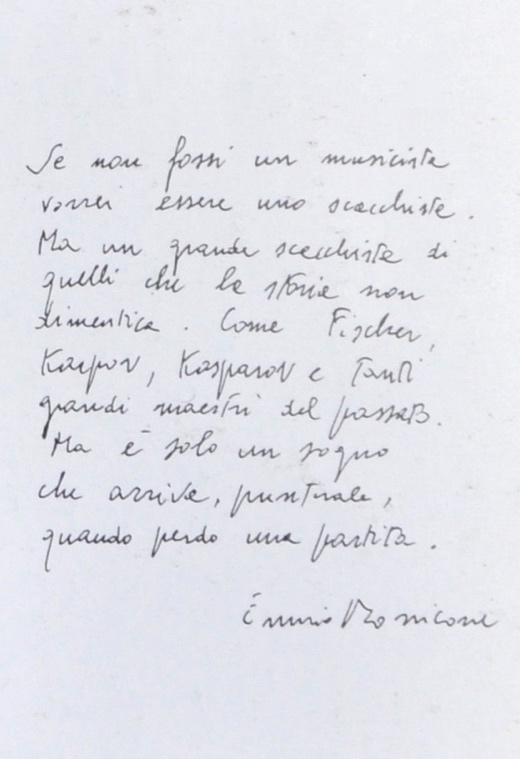 Se non fossi un musicista
vorrei essere uno scacchista.
Ma un grande scacchista di
quelli che la storia non
dimentica. Come Fischer,
Karpov, Kasparov e tanti
grandi maestri del passato.
Ma è solo un sogno
che arriva, puntuale,
quando perdo una partita.
Ennio Morricone